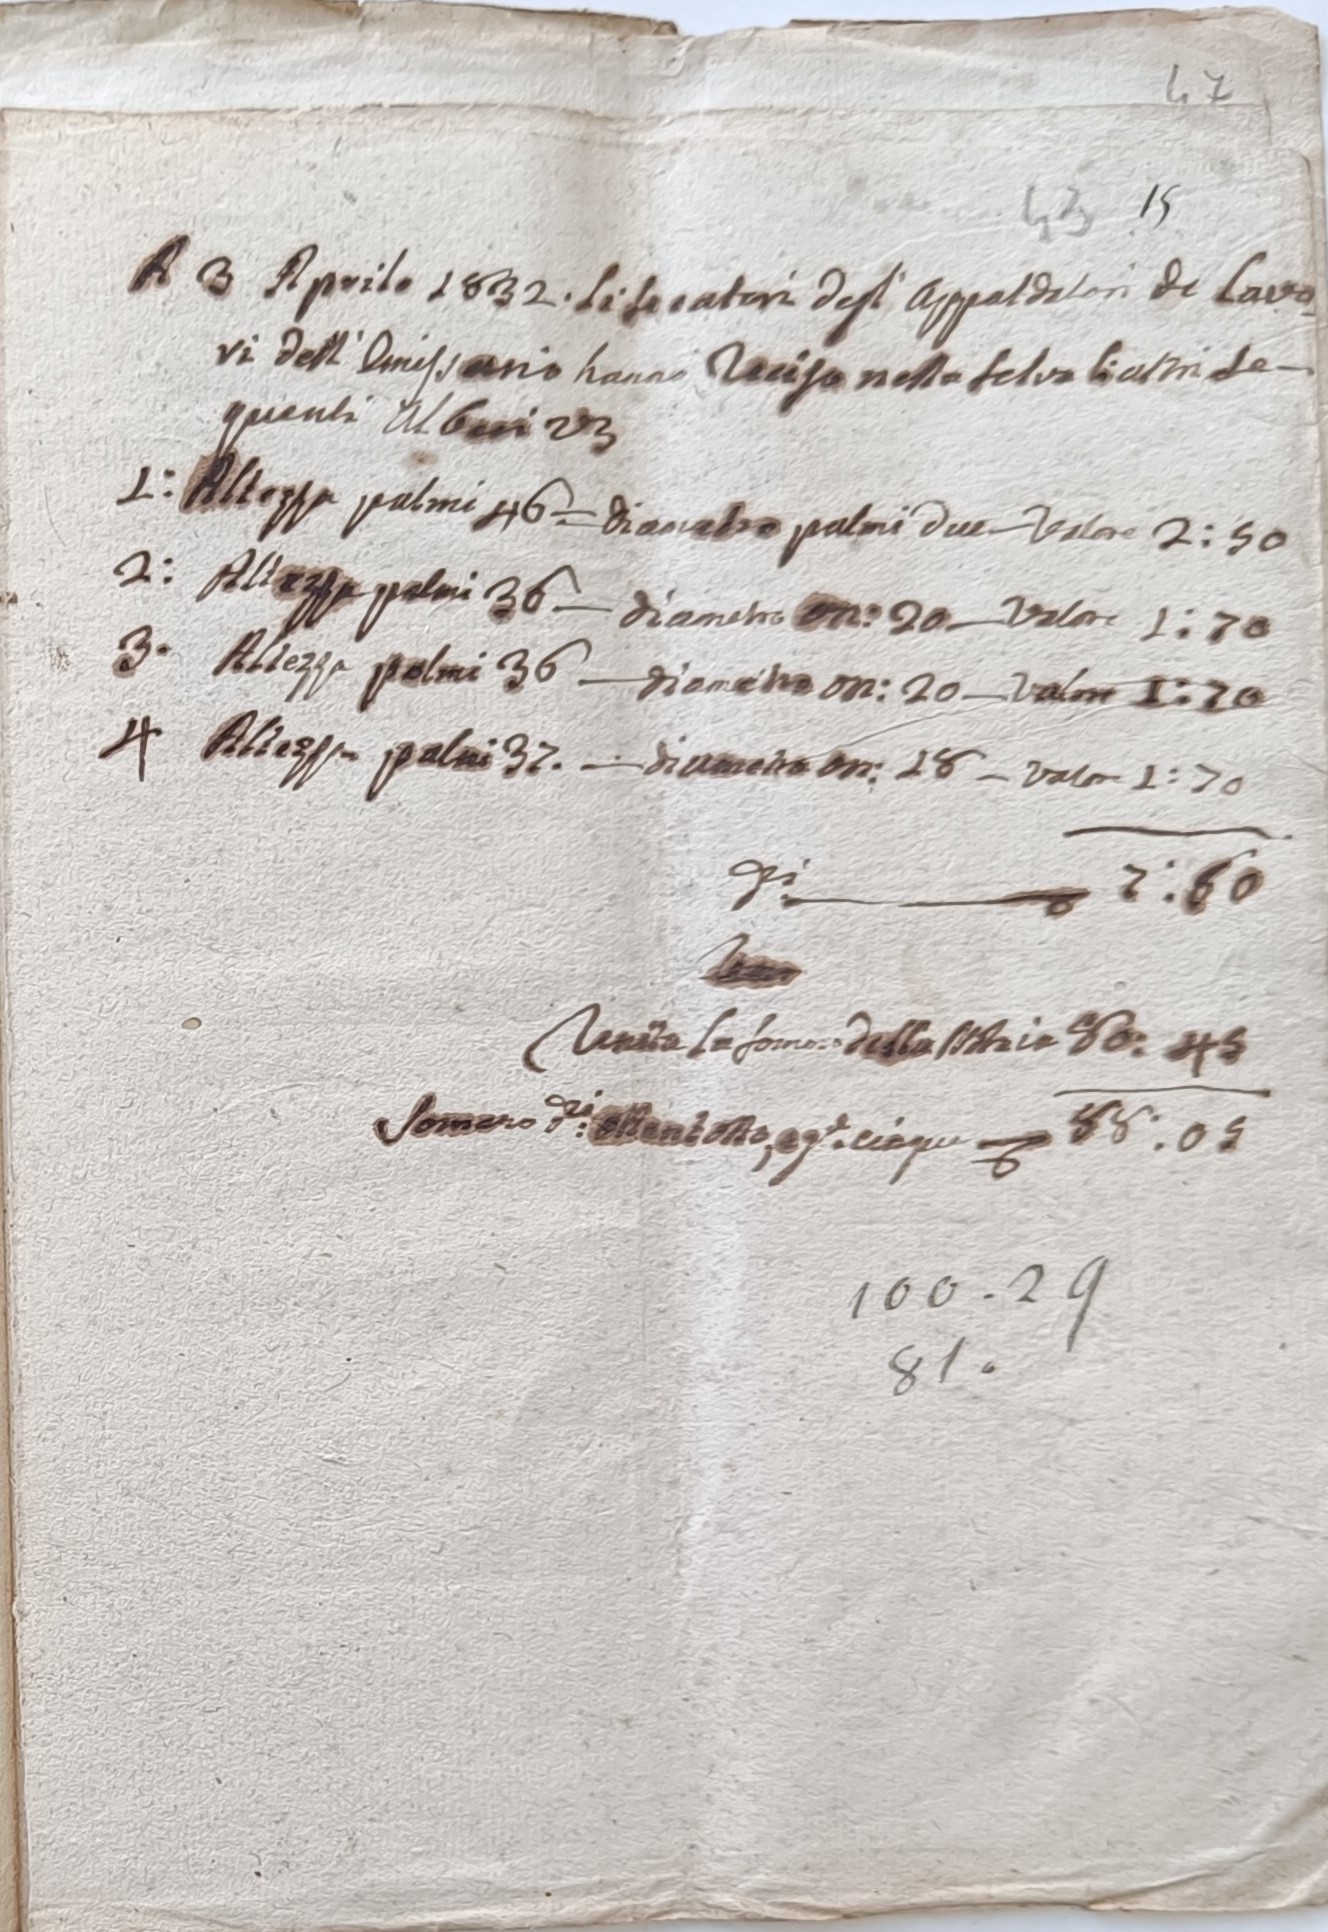 47
43 15
A 3 Aprile 1832. Li Secatori degl' Appaldatori de Lavo-
ri dell' Emissario hanno Recisa nella Selva li altri se-
quenti Alberi
1: Altezza palmi 46 — diametro palmi due — Valore 2: 50
2: Altezza palmi 36 — diametro on: 20 — Valore 1: 70
3. Altezza palmi 36 — diametro on: 20 — Valore 1: 70
4 Altezza palmi 37. — diametro on: 18 — Valor 1: 70
Di 7: 60
la soma della 80: 45
Somero Di: ottantotto, e cinque 88: 05
100.29
81.